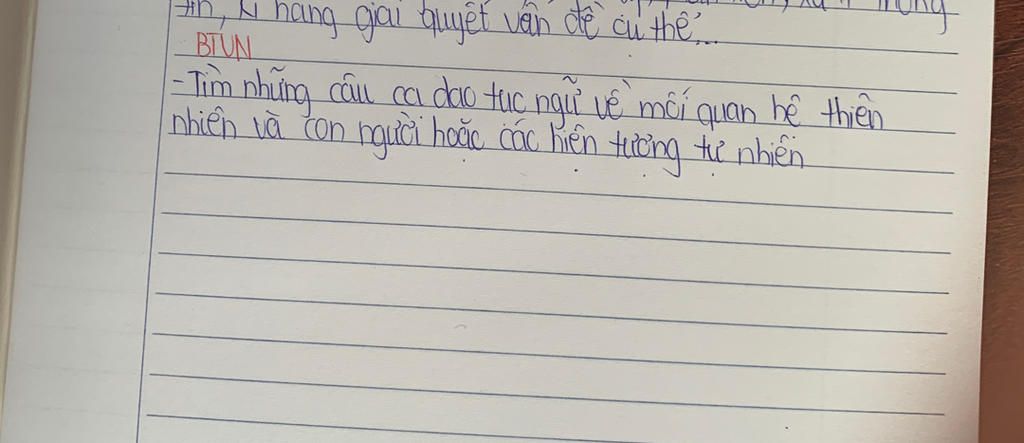 hang giải quyết vấn đề cụ thể...
BTVN
- Tìm những câu ca dao tục ngữ về mối quan hệ thiên
nhiên và con người hoặc các hiện tượng tự nhiên